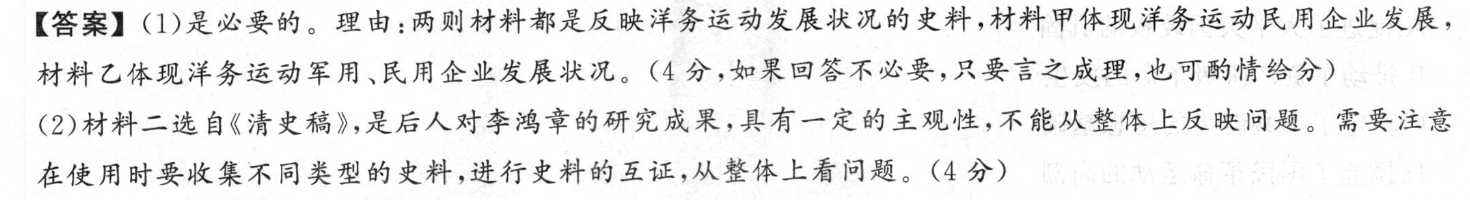 【答案】(1)是必要的。理由:两则材料都是反映洋务运动发展状况的史料,材料甲体现洋务运动民用企业发展,
材料乙体现洋务运动军用、民用企业发展状况。(4分,如果回答不必要,只要言之成理,也可酌情给分)
(2)材料二选自《清史稿》,是后人对李鸿章的研究成果,具有一定的主观性,不能从整体上反映问题。需要注意
在使用时要收集不同类型的史料,进行史料的互证,从整体上看问题。(4分)